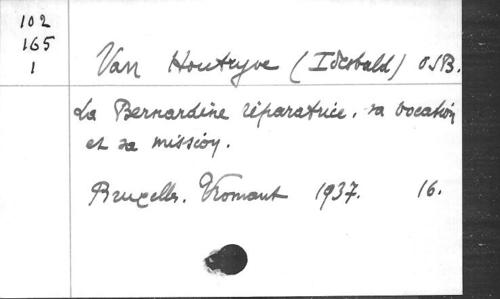 102
165
1
Van Houtryve (Idesbald) OSB.
La Bernardine réparatrice, sa vocation
et sa mission.
Bruxelles. Vromant 1937. 16.